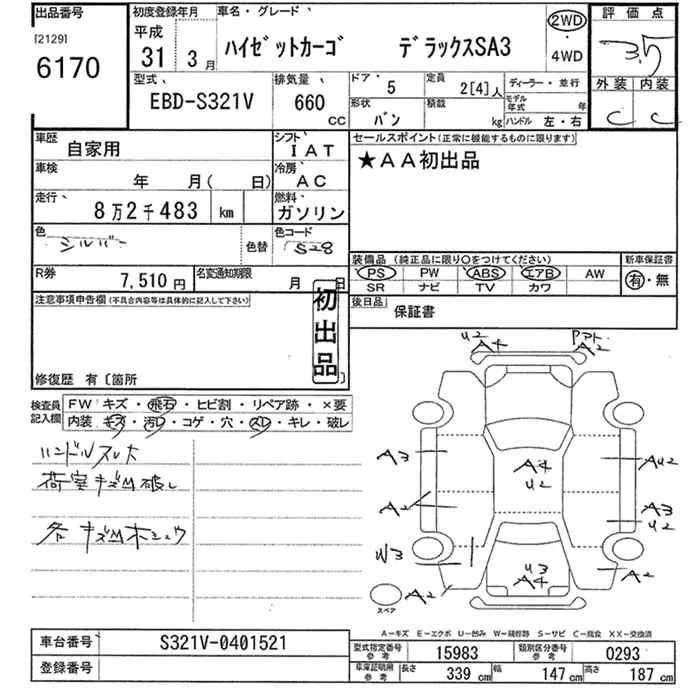 出品番号 初度登録年月 車名・グレード 2WD 評価点
[2129] 平成 ハイゼットカーゴ デラックスSA3 ・ 3.5
6170 31年 3月 4WD
型式 排気量 ドア・ 5 定員 2[4]人 ディーラー・並行 外装 内装
EBD-S321V 660 CC 形状 バン 積載 kg モデル年式 年 ハンドル 左・右 C C
車歴 自家用 シフト IAT セールスポイント(正常に機能するものに限ります)
車検 年 月( 日) 冷房 AC ★AA初出品
走行 8万2千483 km 燃料 ガソリン
色 シルバー 色替 色コード S28
装備品(純正品に限り○をつけてください) 新車保証書
PS PW ABS エアB AW 有・無
SR ナビ TV カワ
R券 7,510円 名変通知期限 月 日
後日品 保証書
注意事項申告欄(不具合内容等は具体的に記入して下さい)
初出品
修復歴 有〔箇所 〕
検査員記入欄 FW キズ・飛石・ヒビ割・リペア跡・×要
内装 キズ・汚レ・コゲ・穴・スレ・キレ・破レ
ハンドルスレ大
荷室キズ凹破レ
各キズ凹ホシュウ
U2 A4 A2
A3 A4 U2 AU2
A2 A3 U2
W3 U3 A4 A2
スペア A2
A-キズ E-エクボ U-凹み W-補修跡 S-サビ C-腐食 XX-交換済
車台番号 S321V-0401521
登録番号
型式指定番号 参考 15983 類別区分番号 参考 0293
車庫証明用 参考 長さ 339 cm 幅 147 cm 高さ 187 cm